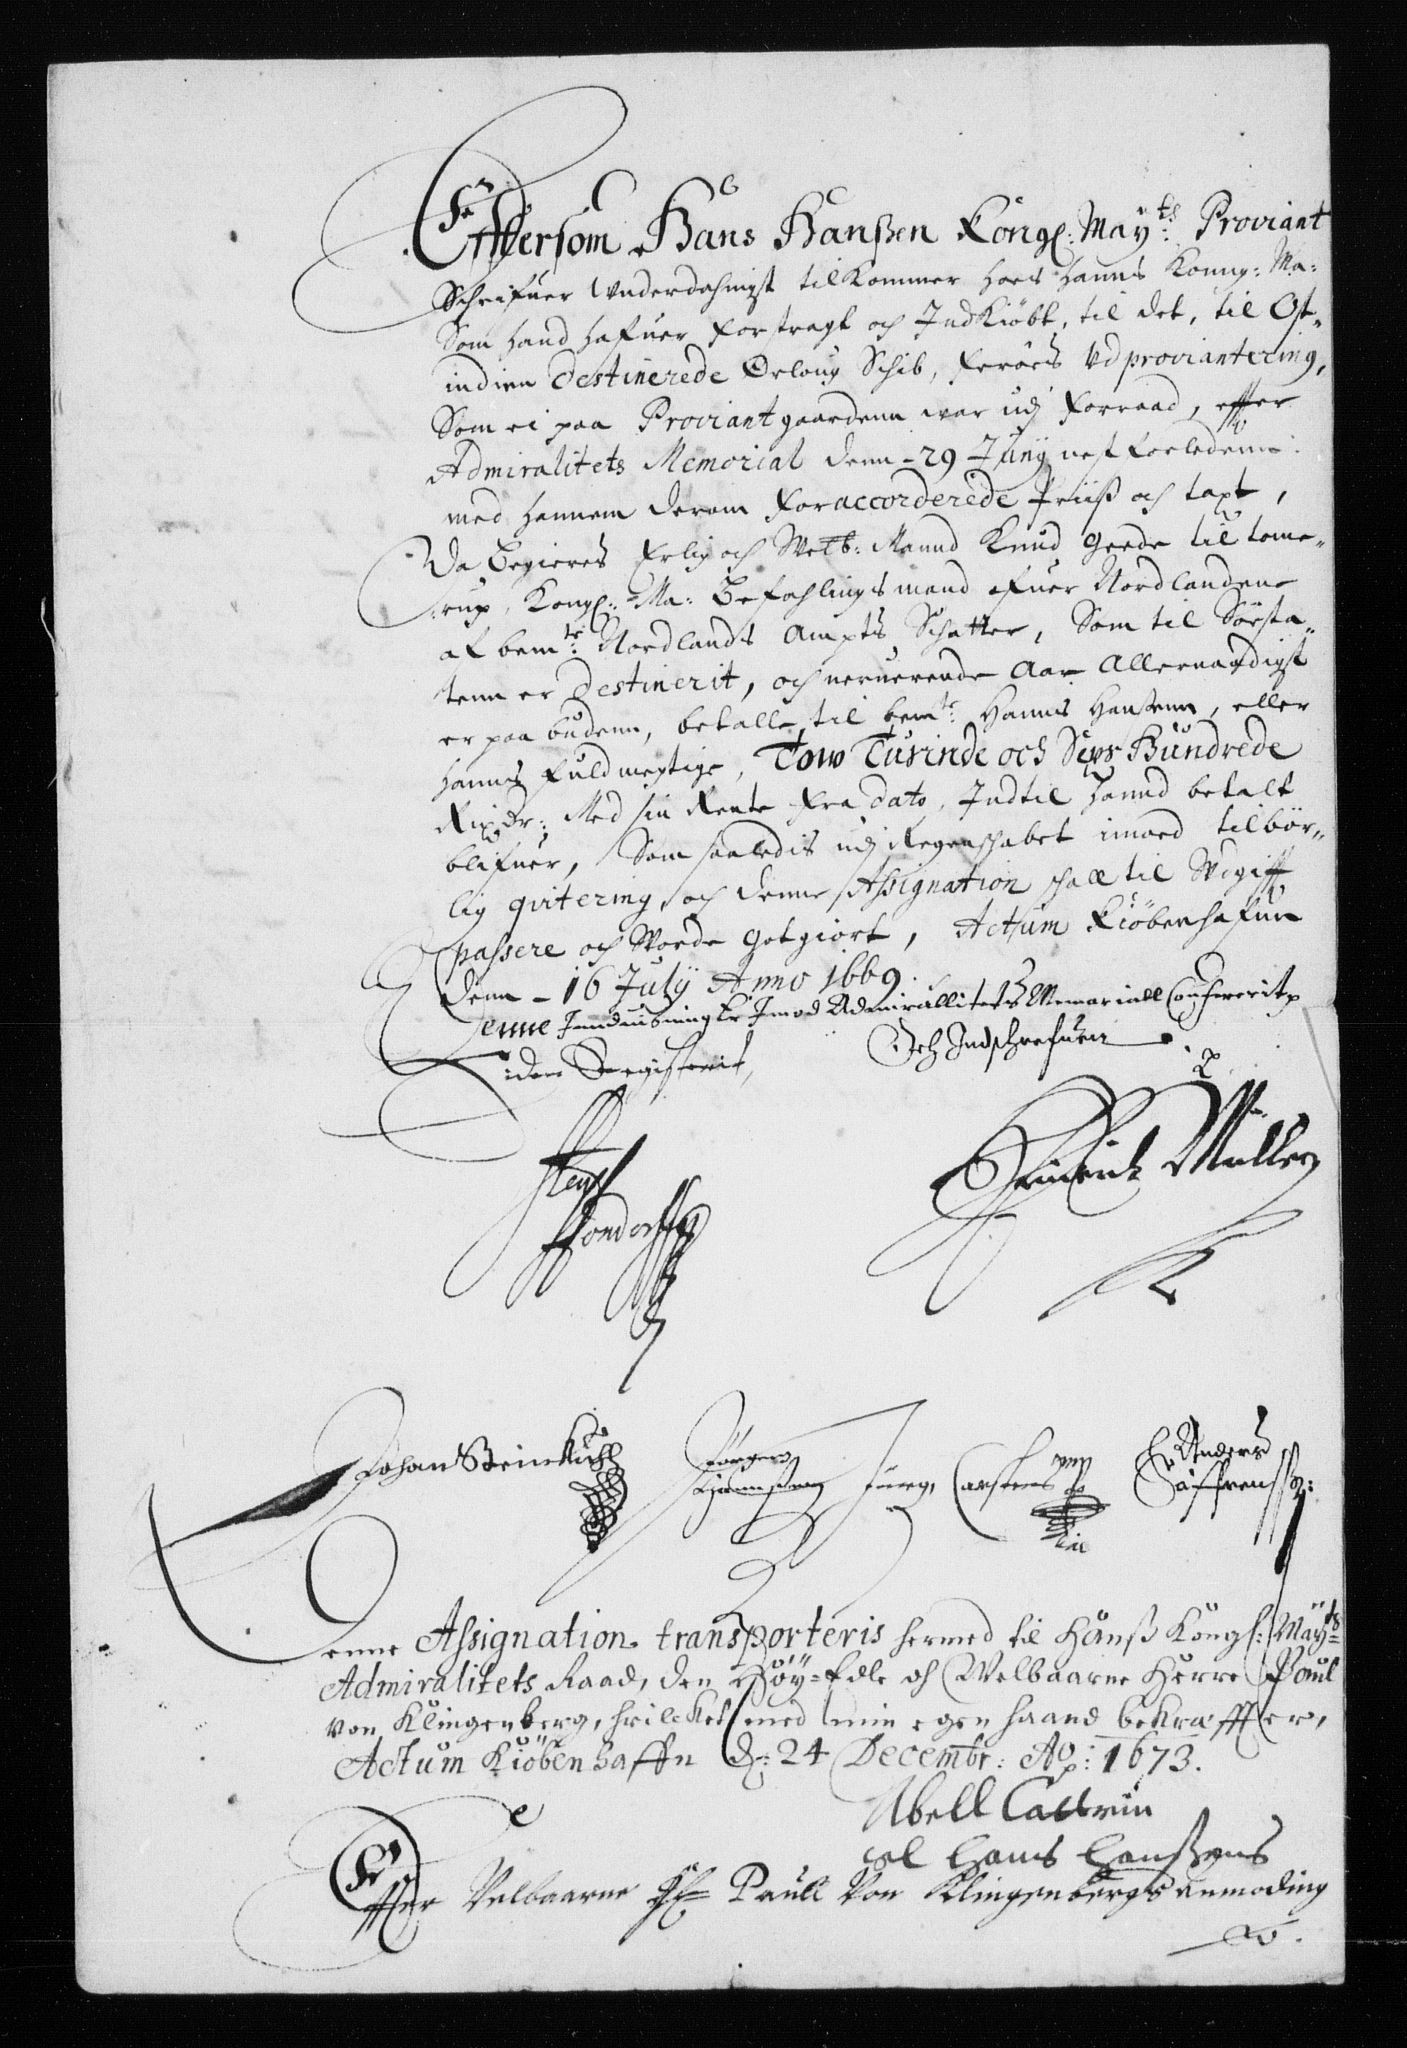 Effersom Hans Hanßen Kongl: Mayts: Proviant
Schrifuer Vnderdahnigst tilkommer hoes hanns Konng: Ma:
Som hand hafuer forstragt och Indkiöbt, til det, til Ost„
indien Destinerede Orloug Schib, Feröes Vdproviantering,
Som ei paa Proviantgaardenn war udj Forraad, effter
Admiralitets Memorial denn - 29 Junij nestforledenn:
med hannem derom Foraccorderede Priiß och taxt,
Da Begieres Erlig och Welb: Mannd Knud Geede til tome„
:rup, Kongl: Ma: Befahlingsmand ofuer Nordlandene
af bemte: Nordlands Ampts Schatter, Som til Söesta„
tenn er Destinerit, och nerverende Aar Allernaadigst
er paabudenn, betalle til bemte: Hanns Hanßenn, eller
hanns fuldmegtige, Tow Tusinde och Sexs Hundrede
Rixdr: Med sin Rente fra dato, Indtil hannd betalt
blifuer, Som saaledis udj Regenschabet imoed tilbör„
lig qvitering, och denne Assignation schall til Vdgifft
passere och Worde gotgiort, Actum Kiöbenhafun
denn - 16 July Anno 1669.
Denne Innduisning Er Imod Admirallitets Memoriall Confererit
Och Indschrefuen
iden Registerit,
Henrich Müller
Johan Steinkuhl
Jörgen Hannßen
Jürg. Carstens
E. Anders Söffrenss:
Denne Assignation transporteris hermed til Hanß Köngl: Mayts
Admiralitets Raad, den Höy=Edle och Welbaarne Herre Poul
von Klingenberg, hvilcket med min egen haand bekræffter,
Actum Kiöbenhaffn d: 24 Decembr: Ao: 1673.
Abell Catrin
sl Hans Hanßens
Effter Velbaarne Hr Paull Von Klingenbergs anmoding